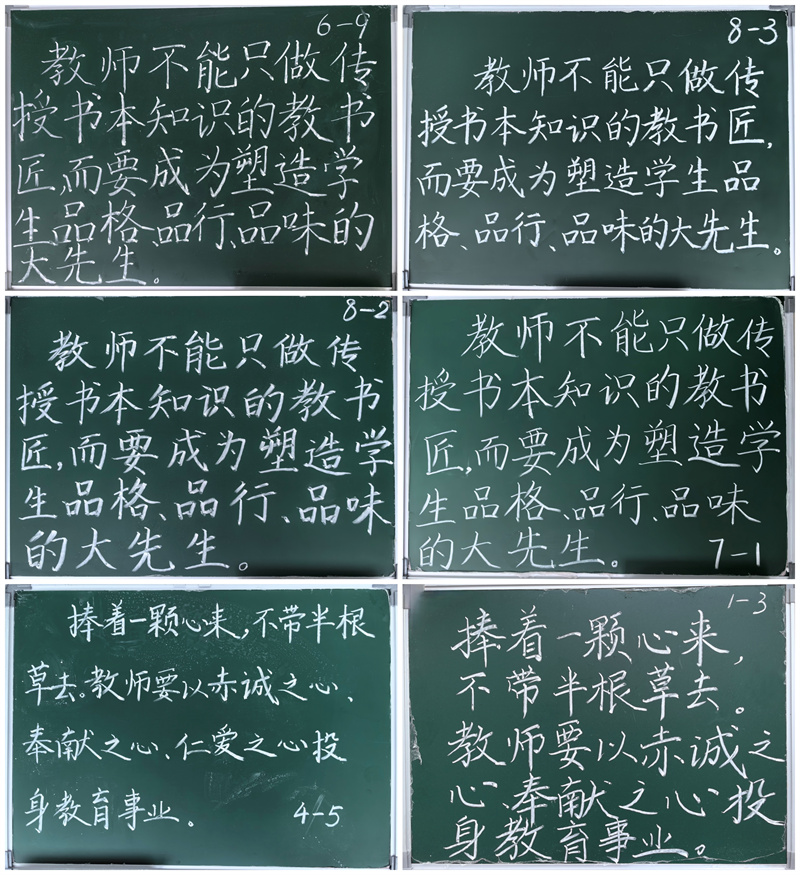 6-9
教师不能只做传
授书本知识的教书
匠,而要成为塑造学
生品格、品行、品味的
大先生。
8-3
教师不能只做传
授书本知识的教书匠,
而要成为塑造学生品
格、品行、品味的大先生。
8-2
教师不能只做传
授书本知识的教书
匠,而要成为塑造学
生品格、品行、品味
的大先生。
教师不能只做传
授书本知识的教书
匠,而要成为塑造学
生品格、品行、品味
的大先生。
7-1
捧着一颗心来,不带半根
草去。教师要以赤诚之心、
奉献之心、仁爱之心投
身教育事业。
4-5
1-3
捧着一颗心来,
不带半根草去。
教师要以赤诚之
心、奉献之心投
身教育事业。